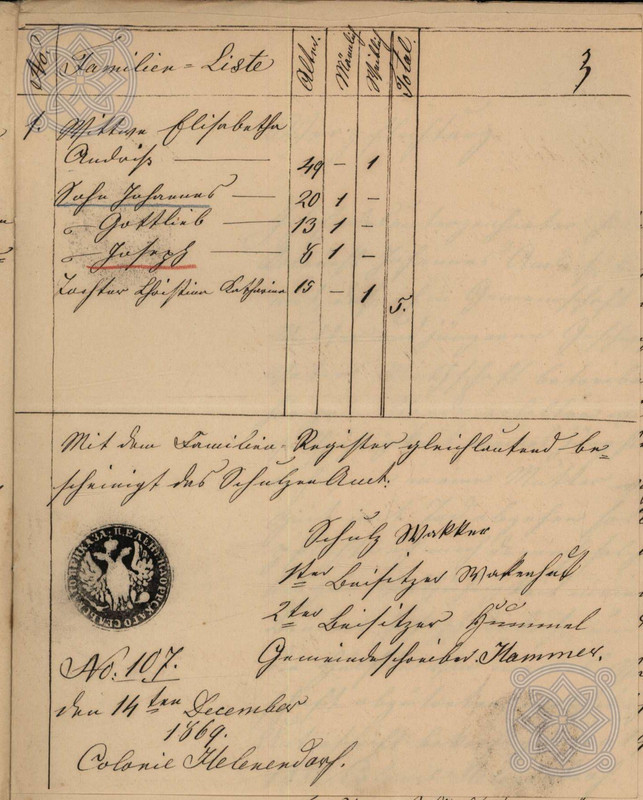 No. Familien=Liste Alter. Männlich Weiblich Total. 3
1. Wittwe Elisabetha
Andriß — 49 – 1
Sohn Johannes — 20 1 –
" Gottlieb — 13 1 –
" Joseph — 8 1 –
Tochter Christina Katharina 15 – 1 5.
Mit dem Familien-Register gleichlautend be=
scheinigt das Schulzen Amt:
Schulz Wakker
1ter Beisitzer Wakenhut
2ter Beisitzer Hummel
Gemeindeschreiber Hammer.
No: 107.
den 14ten December
1869.
Colonie Helenendorf.